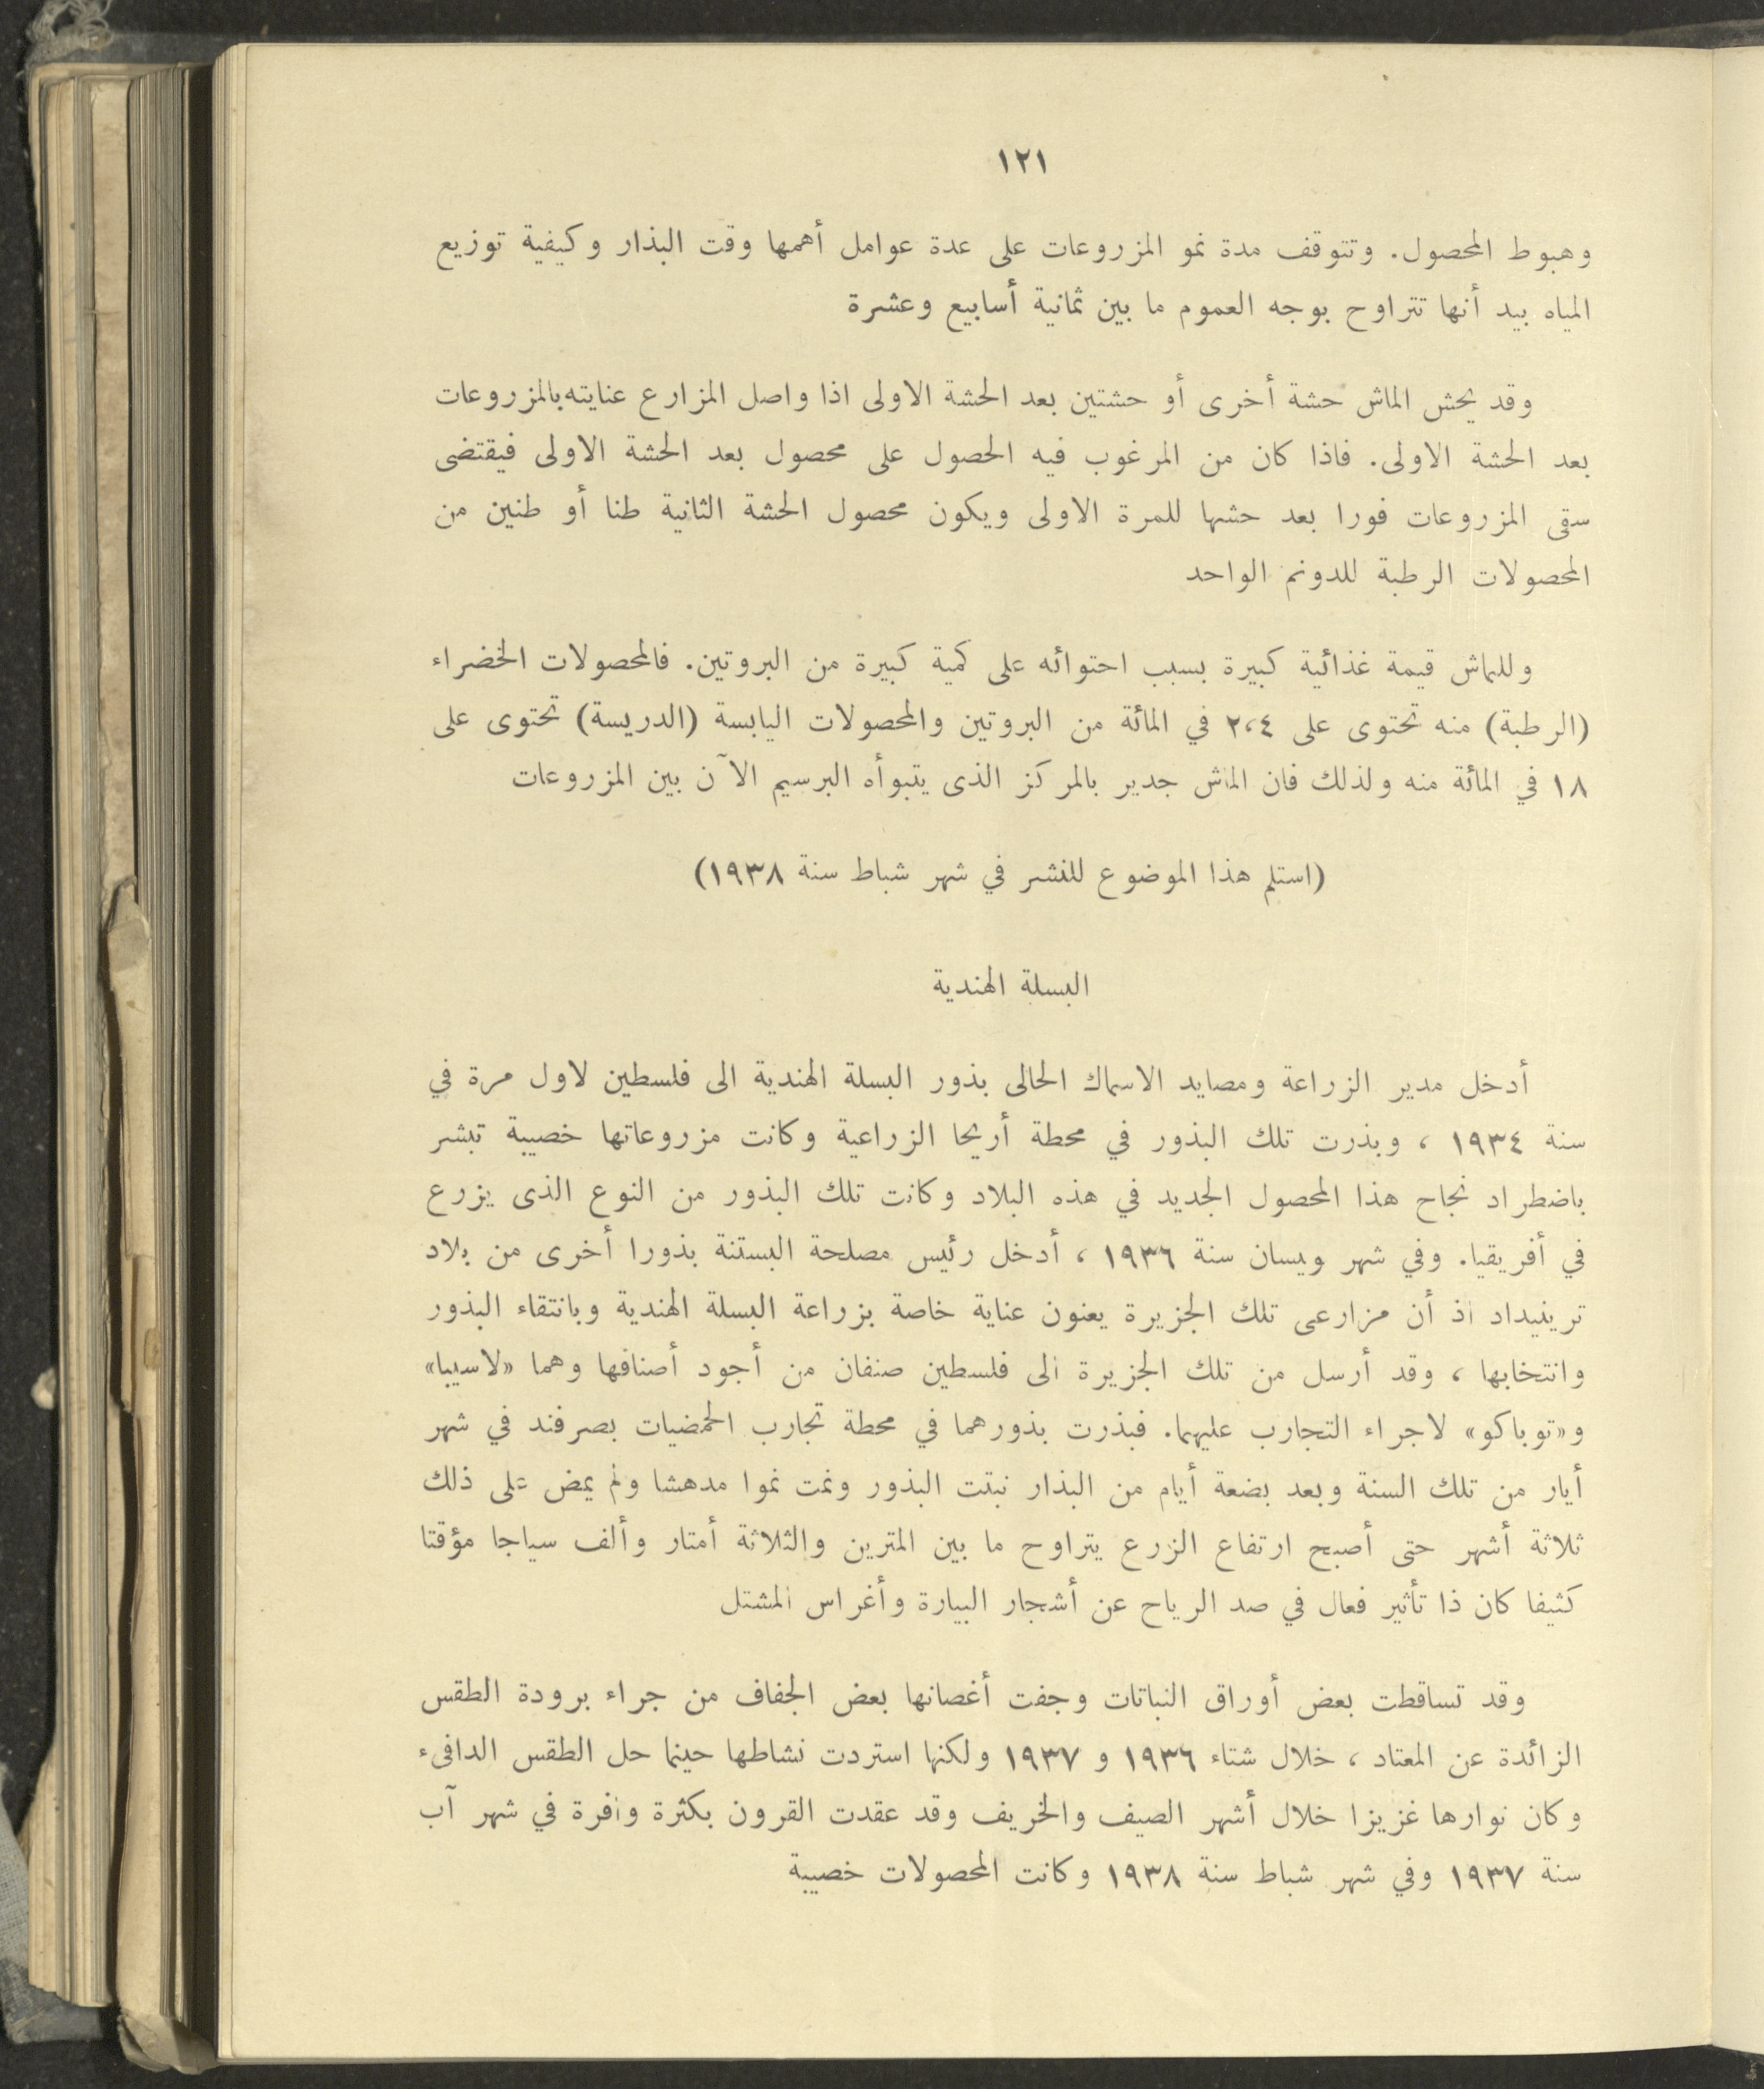 ١٢١
وهبوط المحصول. وتتوقف مدة نمو المزروعات على عدة عوامل أهمها وقت البذار وكيفية توزيع
المياه بيد أنها تتراوح بوجه العموم ما بين ثمانية أسابيع وعشرة
وقد يحش الماش حشة أخرى أو حشتين بعد الحشة الاولى اذا واصل المزارع عنايته بالمزروعات
بعد الحشة الاولى. فاذا كان من المرغوب فيه الحصول على محصول بعد الحشة الاولى فيقتضى
سقى المزروعات فورا بعد حشها للمرة الاولى ويكون محصول الحشة الثانية طنا أو طنين من
المحصولات الرطبة للدونم الواحد
وللماش قيمة غذائية كبيرة بسبب احتوائه على كمية كبيرة من البروتين. فالمحصولات الخضراء
(الرطبة) منه تحتوى على ٢،٤ في المائة من البروتين والمحصولات اليابسة (الدريسة) تحتوى على
١٨ في المائة منه ولذلك فان الماش جدير بالمركز الذى يتبوأه البرسيم الآن بين المزروعات
(استلم هذا الموضوع للنشر في شهر شباط سنة ١٩٣٨)
البسلة الهندية
أدخل مدير الزراعة ومصايد الاسماك الحالى بذور البسلة الهندية الى فلسطين لاول مرة في
سنة ١٩٣٤ ، وبذرت تلك البذور في محطة أريحا الزراعية وكانت مزروعاتها خصيبة تبشر
باضطراد نجاح هذا المحصول الجديد في هذه البلاد وكانت تلك البذور من النوع الذى يزرع
في أفريقيا. وفي شهر ويسان سنة ١٩٣٦ ، أدخل رئيس مصلحة البستنة بذورا أخرى من بلاد
ترينيداد اذ أن مزارعى تلك الجزيرة يعنون عناية خاصة بزراعة البسلة الهندية وبانتقاء البذور
وانتخابها ، وقد أرسل من تلك الجزيرة الى فلسطين صنفان من أجود أصنافها وهما «لاسيبا»
و«توباكو» لاجراء التجارب عليهما. فبذرت بذورهما في محطة تجارب الحمضيات بصرفند في شهر
أيار من تلك السنة وبعد بضعة أيام من البذار نبتت البذور ونمت نموا مدهشا ولم يمض على ذلك
ثلاثة أشهر حتى أصبح ارتفاع الزرع يتراوح ما بين المترين والثلاثة أمتار وألف سياجا مؤقتا
كثيفا كان ذا تأثير فعال في صد الرياح عن أشجار البيارة وأغراس المشتل
وقد تساقطت بعض أوراق النباتات وجفت أغصانها بعض الجفاف من جراء برودة الطقس
الزائدة عن المعتاد ، خلال شتاء ١٩٣٦ و ١٩٣٧ ولكنها استردت نشاطها حينما حل الطقس الدافىء
وكان نوارها غزيزا خلال أشهر الصيف والخريف وقد عقدت القرون بكثرة وافرة في شهر آب
سنة ١٩٣٧ وفي شهر شباط سنة ١٩٣٨ وكانت المحصولات خصيبة